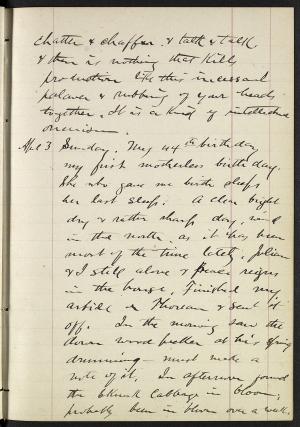 chatter & chaffer. & talk & talk
& there is nothing that kills
production like this incessant
palaver & rubbing of your heads
together. It is a kind of intellectual
onanism.
April 3 Sunday. My 44th birthday
my first motherless birthday.
She who gave me birth sleeps
her last sleep. A clear bright
dry & rather sharp day, wind
in the north, as it has been
most of the time lately. Julian
& I still alone & peace reigns
in the house. Finished my
article on Thoreau & sent it
off. In the morning saw the
downy woodpecker at his spring
drumming — must make a
note of it. In afternoon found
the skunk Cabbage in bloom;
probably been in bloom over a week.